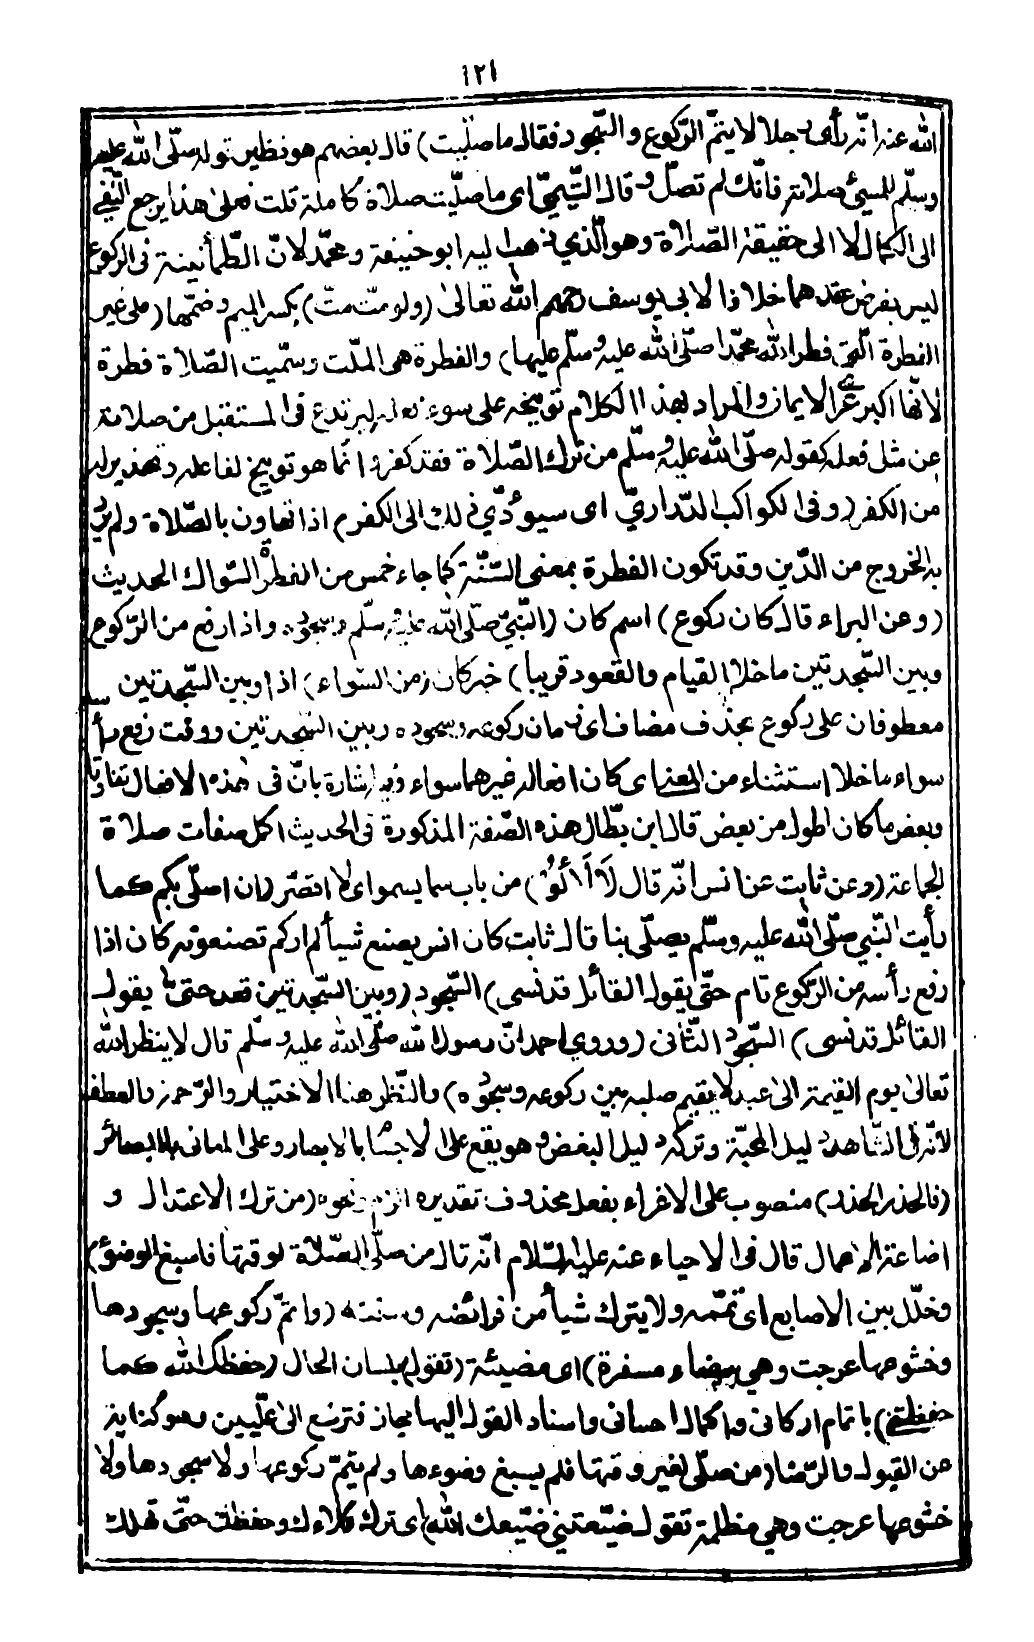 ١٢١
الله عنه انّه رأى رجلا لا يتمّ الرّكوع والسّجود فقال ما صلّيت) قال بعضهم هو نظير قوله صلّى الله عليه
وسلّم للمسئ صلاته فانّك لم تصلّ وقال التّيمىّ اى ما صلّيت صلاة كاملة قلت فعلى هذا يرجع النّفى
الى الكمال لا الى حقيقة الصّلاة وهو الّذي ذهب اليه ابو حنيفة ومحمّد لانّ الطّمأنينة فى الركوع
ليس بفرض عندهما خلافا لابى يوسف رحمهم الله تعالى (ولو متّ متّ) بكسر الميم وضمّها (على غير
الفطرة الّتى فطر الله محمّدا صلّى الله عليه وسلّم عليها) والفطرة هى الملّت وسمّيت الصّلاة فطرة
لانّها اكبر عرى الايمان والمراد بهذا الكلام توبيخه على سوء فعله ليرتدع فى المستقبل من صلاته
عن مثل فعله كقوله صلّى الله عليه وسلّم من ترك الصّلاة فقد كفر انّما هو توبيخ لفاعله وتحذير له
من الكفر (وفى الكواكب الدّراريّ اى سيؤدّي ذلك الى الكفر م اذا تهاون بالصّلاة ولم يرد
به الخروج من الدّين وقد تكون الفطرة بمعنى السّنّة كما جاء خمس من الفطرة السّواك الحديث
(وعن البراء قال كان ركوع) اسم كان (النّبيّ صلّى الله عليه وسلّم وسجوده واذا رفع من الرّكوع
وبين السّجدتين ما خلا القيام والقعود قريبا) خبر كان (من السّواء) اذا وبين السّجدتين
معطوفان على ركوع بحذف مضاف اى زمان ركوعه وسجوده وبين السّجدتين ووقت رفع رأ
سواء ما خلا استثناء من المعنى اى كان افعاله غيرهما سواء وفيه اشارة بانّ فى هذه الافعال تفاوتا
وبعض ما كان اطول من بعض قال ابن بطّال هذه الصّفة المذكورة فى الحديث اكمل صفات صلاة
الجماعة (وعن ثابت عن انس انّه قال لاَ آلُو) من باب سما يسمو اى لا اقصّر (ان اصلّى بكم كما
رأيت النّبي صلّى الله عليه وسلّم يصلّى بنا قال ثابت كان انس يصنع شيأ لم اركم تصنعونه كان اذا
رفع رأسه من الرّكوع قام حتّى يقول القائل قد نسى) السّجود (وبين السّجدتين قعد حتّى يقول
القائل قد نسى) السّجود الثّانى (وروي احمد انّ رسول الله صلّى الله عليه وسلّم قال لا ينظر الله
تعالى يوم القيمة الى عبد لا يقيم صلبه بين ركوعه وسجوده) والنّظر هنا الاختيار والرّحمة والعطف
لانّه فى الشّاهد دليل المحبّة وتركه دليل البغض وهو يقع على الاجسام بالابصار وعلى المعانى بالبصائر
(فالحذر الحذر) منصوب على الاغراء بفعل محذوف تقديره الزم ونحوه (من ترك الاعتدال و
اضاعة الاهمال قال فى الاحياء عنه عليه السّلام انّه قال من صلّى الصّلاة لوقتها فاسبغ الوضوء)
وخلّل بين الاصابع اى تمّمه ولا يترك شيأ من فرائضه وسننه (واتمّ ركوعها وسجودها
وخشوعها عرجت وهي بيضاء مسفرة) اى مضيئة (تقول) بلسان الحال (حفظك الله كما
حفظتنى) باتمام اركانى واكمال احسانى واسناد القول اليها مجاز فترفع الى علّيين وهو كناية
عن القبول والرّضا (ومن صلّى لغير وقتها فلم يسبغ وضوءها ولم يتمّ ركوعها ولا سجودها ولا
خشوعها عرجت وهي مظلمة تقول ضيّعتني ضيّعك الله) اى ترك كلاءك وحفظك حتّى تهلك